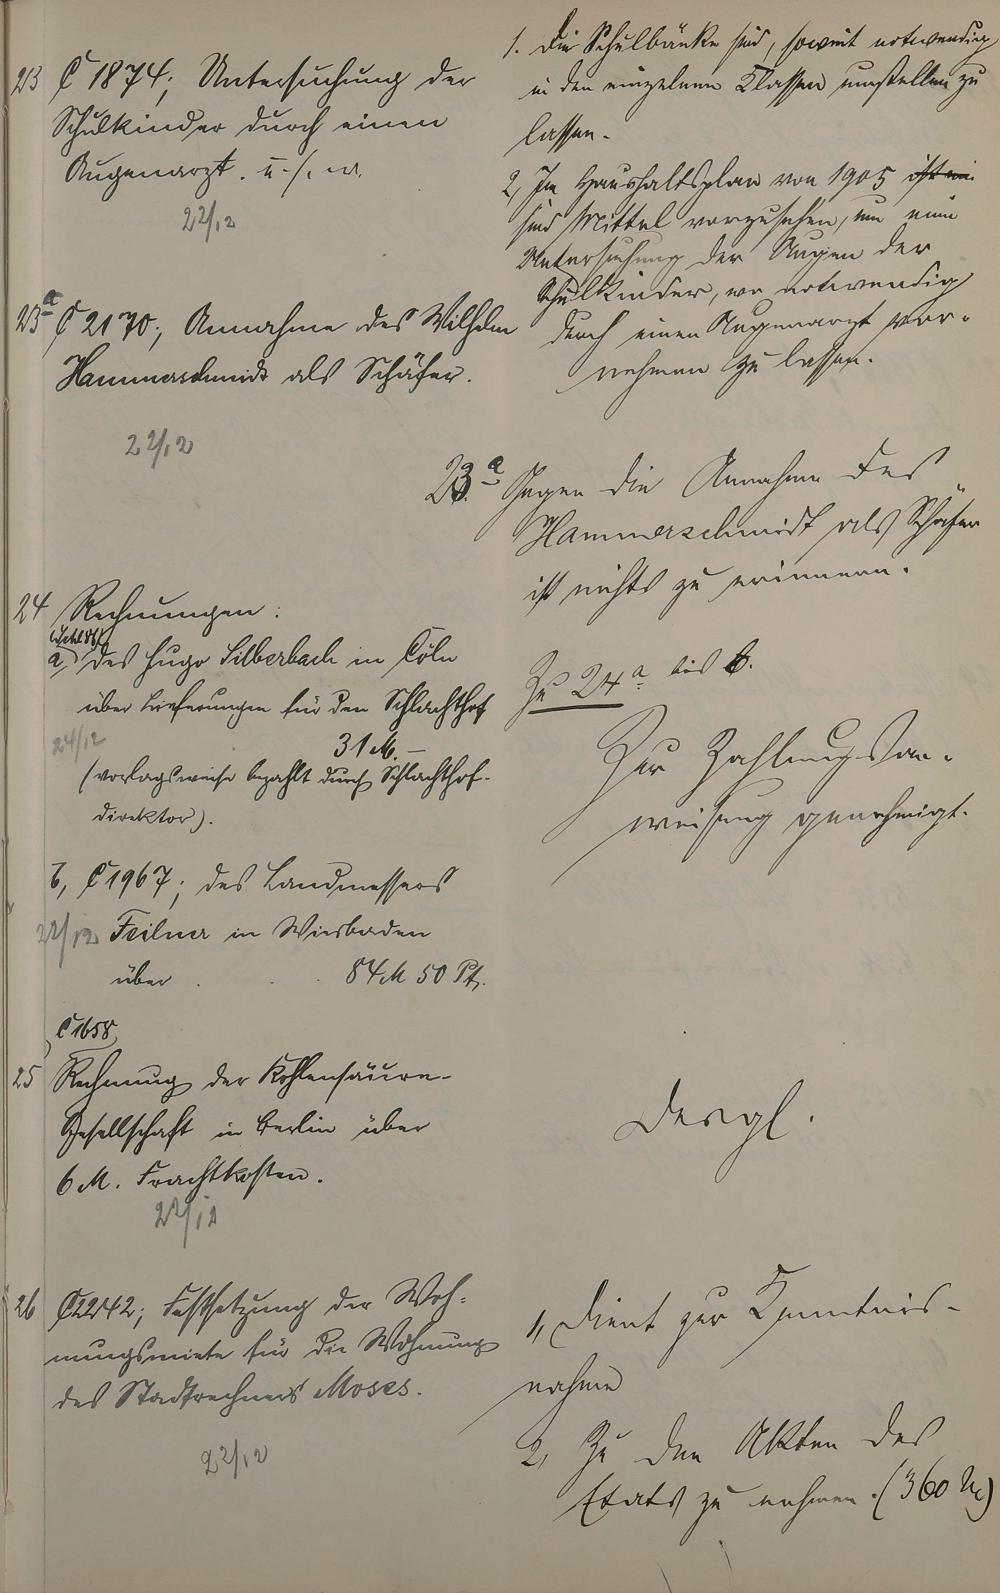 23 C 1874; Untersuchung der
Schulkinder durch einen
Augenarzt. u. s. w.
22/12
1. Die Schulbänke sind, soweit notwendig
in den einzelnen Klassen umstellen zu
lassen.
2, Im Haushaltsplan von 1905 ist
sind Mittel vorzusehen, um eine
Untersuchung der Augen der
Schulkinder, wo notwendig
durch einen Augenarzt vor-
nehmen zu lassen.
23a C 2170; Annahme des Wilhelm
Hammerschmidt als Schäfer.
22/12
23.a Gegen die Annahme des
Hammerschmidt als Schäfer
ist nichts zu erinnern.
24 Rechnungen:
a, des Hugo Silberbach in Cöln
über Lieferungen für den Schlachthof
24/12
31 M. –
(vorlagsweise bezahlt durch Schlachthof-
direktor).
Zu 24a bis b.
Zur Zahlungsan-
weisung genehmigt.
b, C 1967; des Landmessers
22/12 Feilner in Wiesbaden
über 84 M 50 Pf.
C 1658
25 Rechnung der Kohlensäure-
Gesellschaft in Berlin über
6 M. Frachtkosten.
22/12
Desgl.
26 C 2242; Festsetzung der Woh-
nungsmiete für die Wohnung
des Stadtrechners Moses.
22/12
1, Dient zur Kenntnis-
nahme
2, Zu den Akten des
Etats zu nehmen. (360 M)